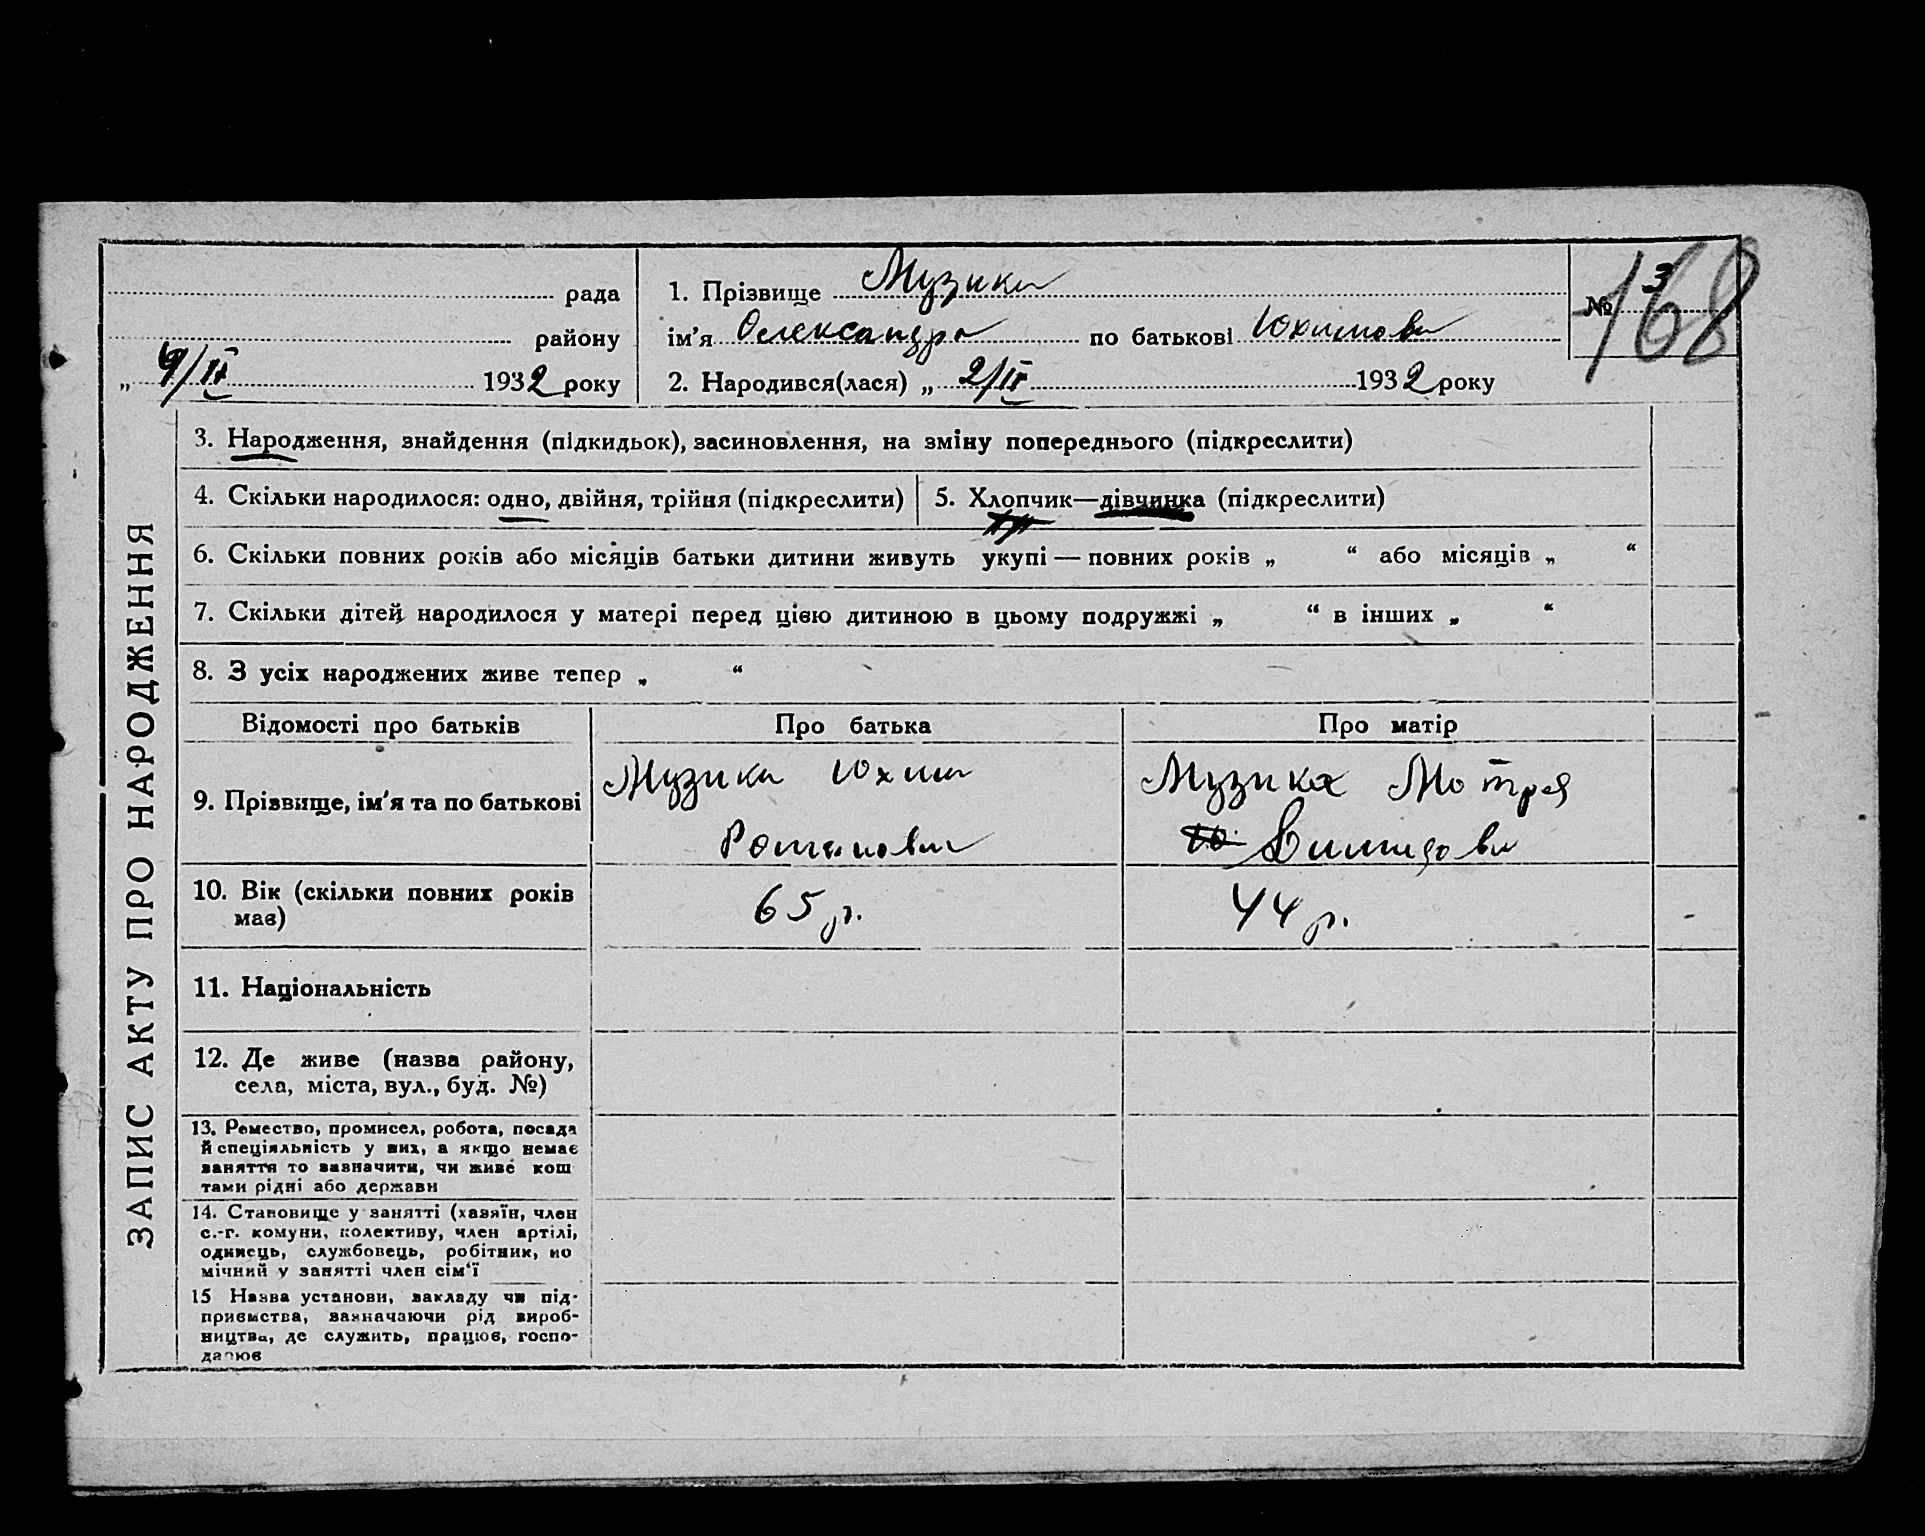 ЗАПИС АКТУ ПРО НАРОДЖЕННЯ
рада
району
1932 року
1. Прізвище Музика
ім'я Олександра по батькові Юхимовн
2. Народився(лася) „ 2/IV 1932 року
№ 3
168
3. Народження, знайдення (підкидьок), засиновлення, на зміну попереднього (підкреслити)
4. Скільки народилося: одно, двійня, трійня (підкреслити)
5. Хлопчик—дівчинка (підкреслити)
6. Скільки повних років або місяців батьки дитини живуть укупі — повних років „ “ або місяців „ “
7. Скільки дітей народилося у матері перед цією дитиною в цьому подружжі „ “ в інших „ “
8. З усіх народжених живе тепер „ “
Відомості про батьків
Про батька
Про матір
9. Прізвище, ім'я та по батькові
Музика Юхим
Романович
Музика Мотря
10. Вік (скільки повних років
має)
65 р.
44 р.
11. Національність
12. Де живе (назва району,
села, міста, вул., буд. №)
13. Ремество, промисел, робота, посада
й спеціяльність у них, а якщо немає
заняття то зазначити, чи живе кош
тами рідні або держави
14. Становище у занятті (хазяїн, член
с.-г. комуни, колективу, член артілі,
одинець, службовець, робітник, по
мічний у занятті член сім'ї
15 Назва установи, закладу чи під-
приємства, зазначаючи рід вироб-
ництва, де служить, працює, госпо-
дарює